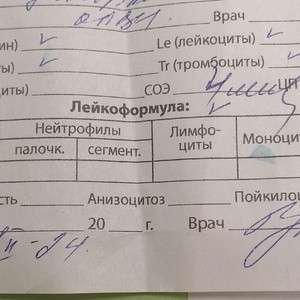 Врач
ин) ✓ Le (лейкоциты) ✓
ты) ✓ Tr (тромбоциты) ✓
циты) СОЭ ЦП
Лейкоформула: ✓
Нейтрофилы Лимфоциты Моноци
палочк. сегмент.
сть Анизоцитоз Пойкило
20 г. Врач